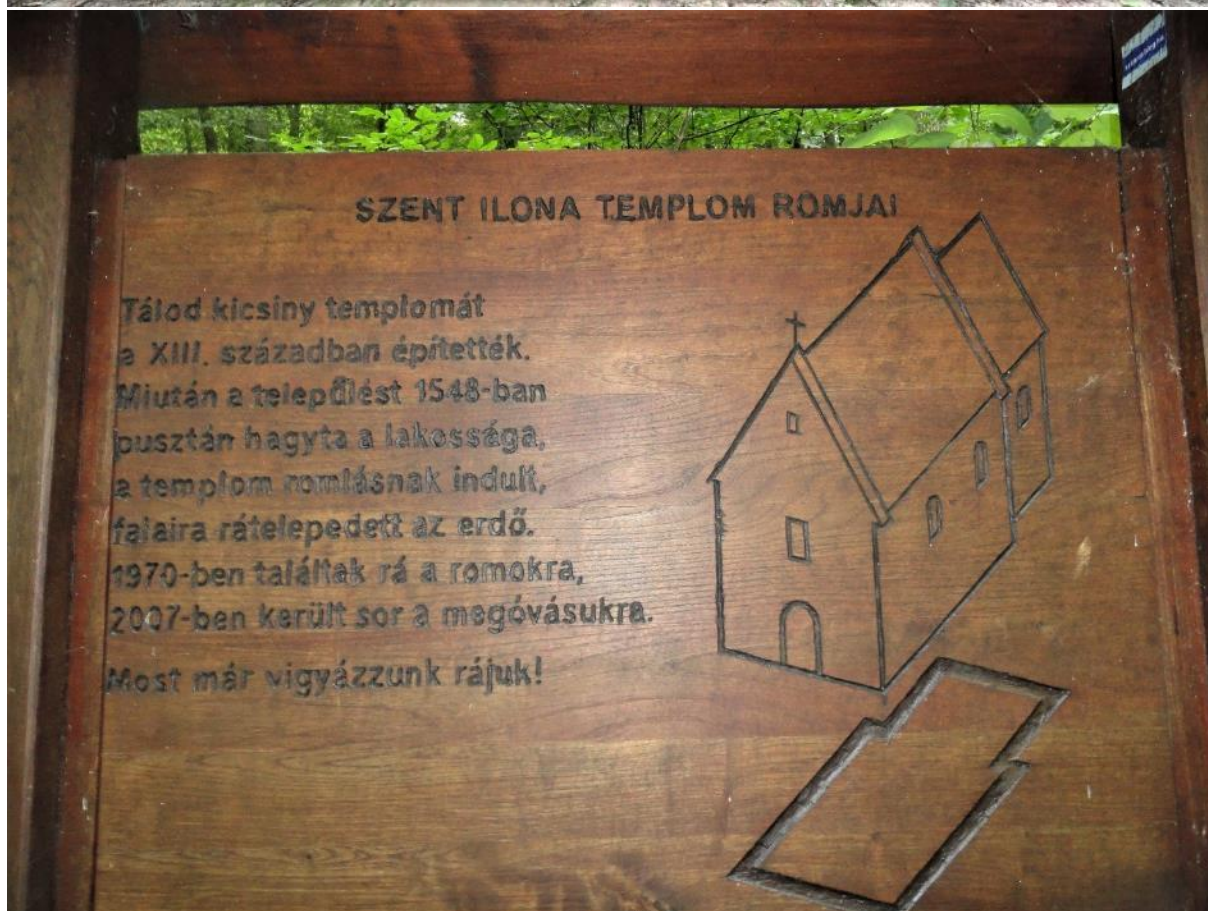 SZENT ILONA TEMPLOM ROMJAI
Tálod kicsiny templomát
a XIII. században építették.
Miután a települést 1548-ban
pusztán hagyta a lakossága,
a templom romlásnak indult,
falaira rátelepedett az erdő.
1970-ben találtak rá a romokra,
2007-ben került sor a megóvásukra.
Most már vigyázzunk rájuk!